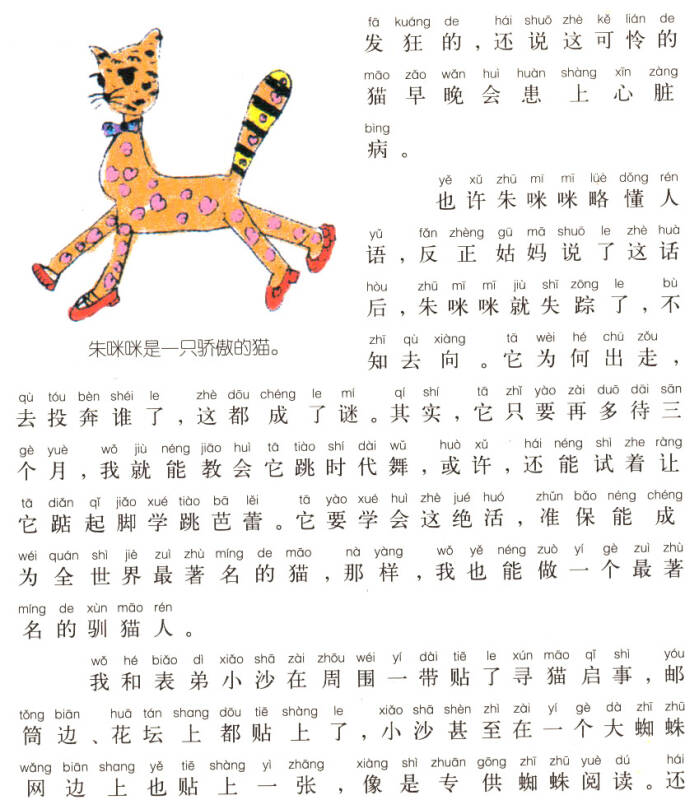 fā kuáng de hái shuō zhè kě lián de
发狂的，还说这可怜的
māo zǎo wǎn huì huàn shàng xīn zàng
猫早晚会患上心脏
bìng
病。
yě xǔ zhū mī mī lüè dǒng rén
也许朱咪咪略懂人
yǔ fǎn zhèng gū mā shuō le zhè huà
语，反正姑妈说了这话
hòu zhū mī mī jiù shī zōng le bù
后，朱咪咪就失踪了，不
zhī qù xiàng tā wèi hé chū zǒu
知去向。它为何出走，
朱咪咪是一只骄傲的猫。
qù tóu bèn shéi le zhè dōu chéng le mí qí shí tā zhǐ yào zài duō dāi sān
去投奔谁了，这都成了谜。其实，它只要再多待三
gè yuè wǒ jiù néng jiāo huì tā tiào shí dài wǔ huò xǔ hái néng shì zhe ràng
个月，我就能教会它跳时代舞，或许，还能试着让
tā diǎn qǐ jiǎo xué tiào bā lěi tā yào xué huì zhè jué huó zhǔn bǎo néng chéng
它踮起脚学跳芭蕾。它要学会这绝活，准保能成
wéi quán shì jiè zuì zhù míng de māo nà yàng wǒ yě néng zuò yí gè zuì zhù
为全世界最著名的猫，那样，我也能做一个最著
míng de xùn māo rén
名的驯猫人。
wǒ hé biǎo dì xiǎo shā zài zhōu wéi yí dài tiē le xún māo qǐ shì yóu
我和表弟小沙在周围一带贴了寻猫启事，邮
tǒng biān huā tán shang dōu tiē shàng le xiǎo shā shèn zhì zài yí gè dà zhī zhū
筒边、花坛上都贴上了，小沙甚至在一个大蜘蛛
wǎng biān shang yě tiē shàng yì zhāng xiàng shì zhuān gōng zhī zhū yuè dú hái
网边上也贴上一张，像是专供蜘蛛阅读。还